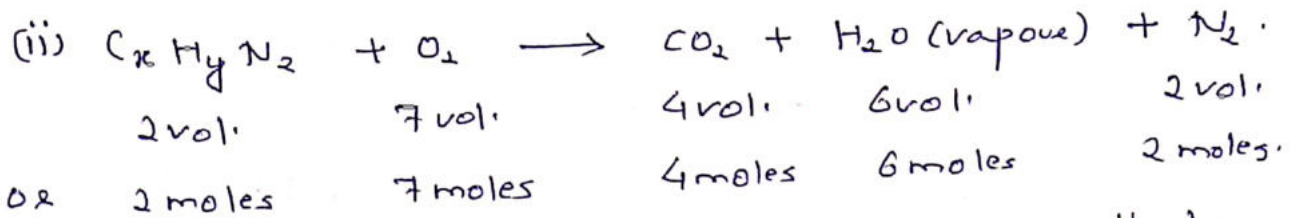 (ii) CxHyN2 + O2 ⟶ CO2 + H2O (vapour) + N2.
2 vol. 7 vol. 4 vol. 6 vol. 2 vol.
or 2 moles 7 moles 4 moles 6 moles 2 moles.